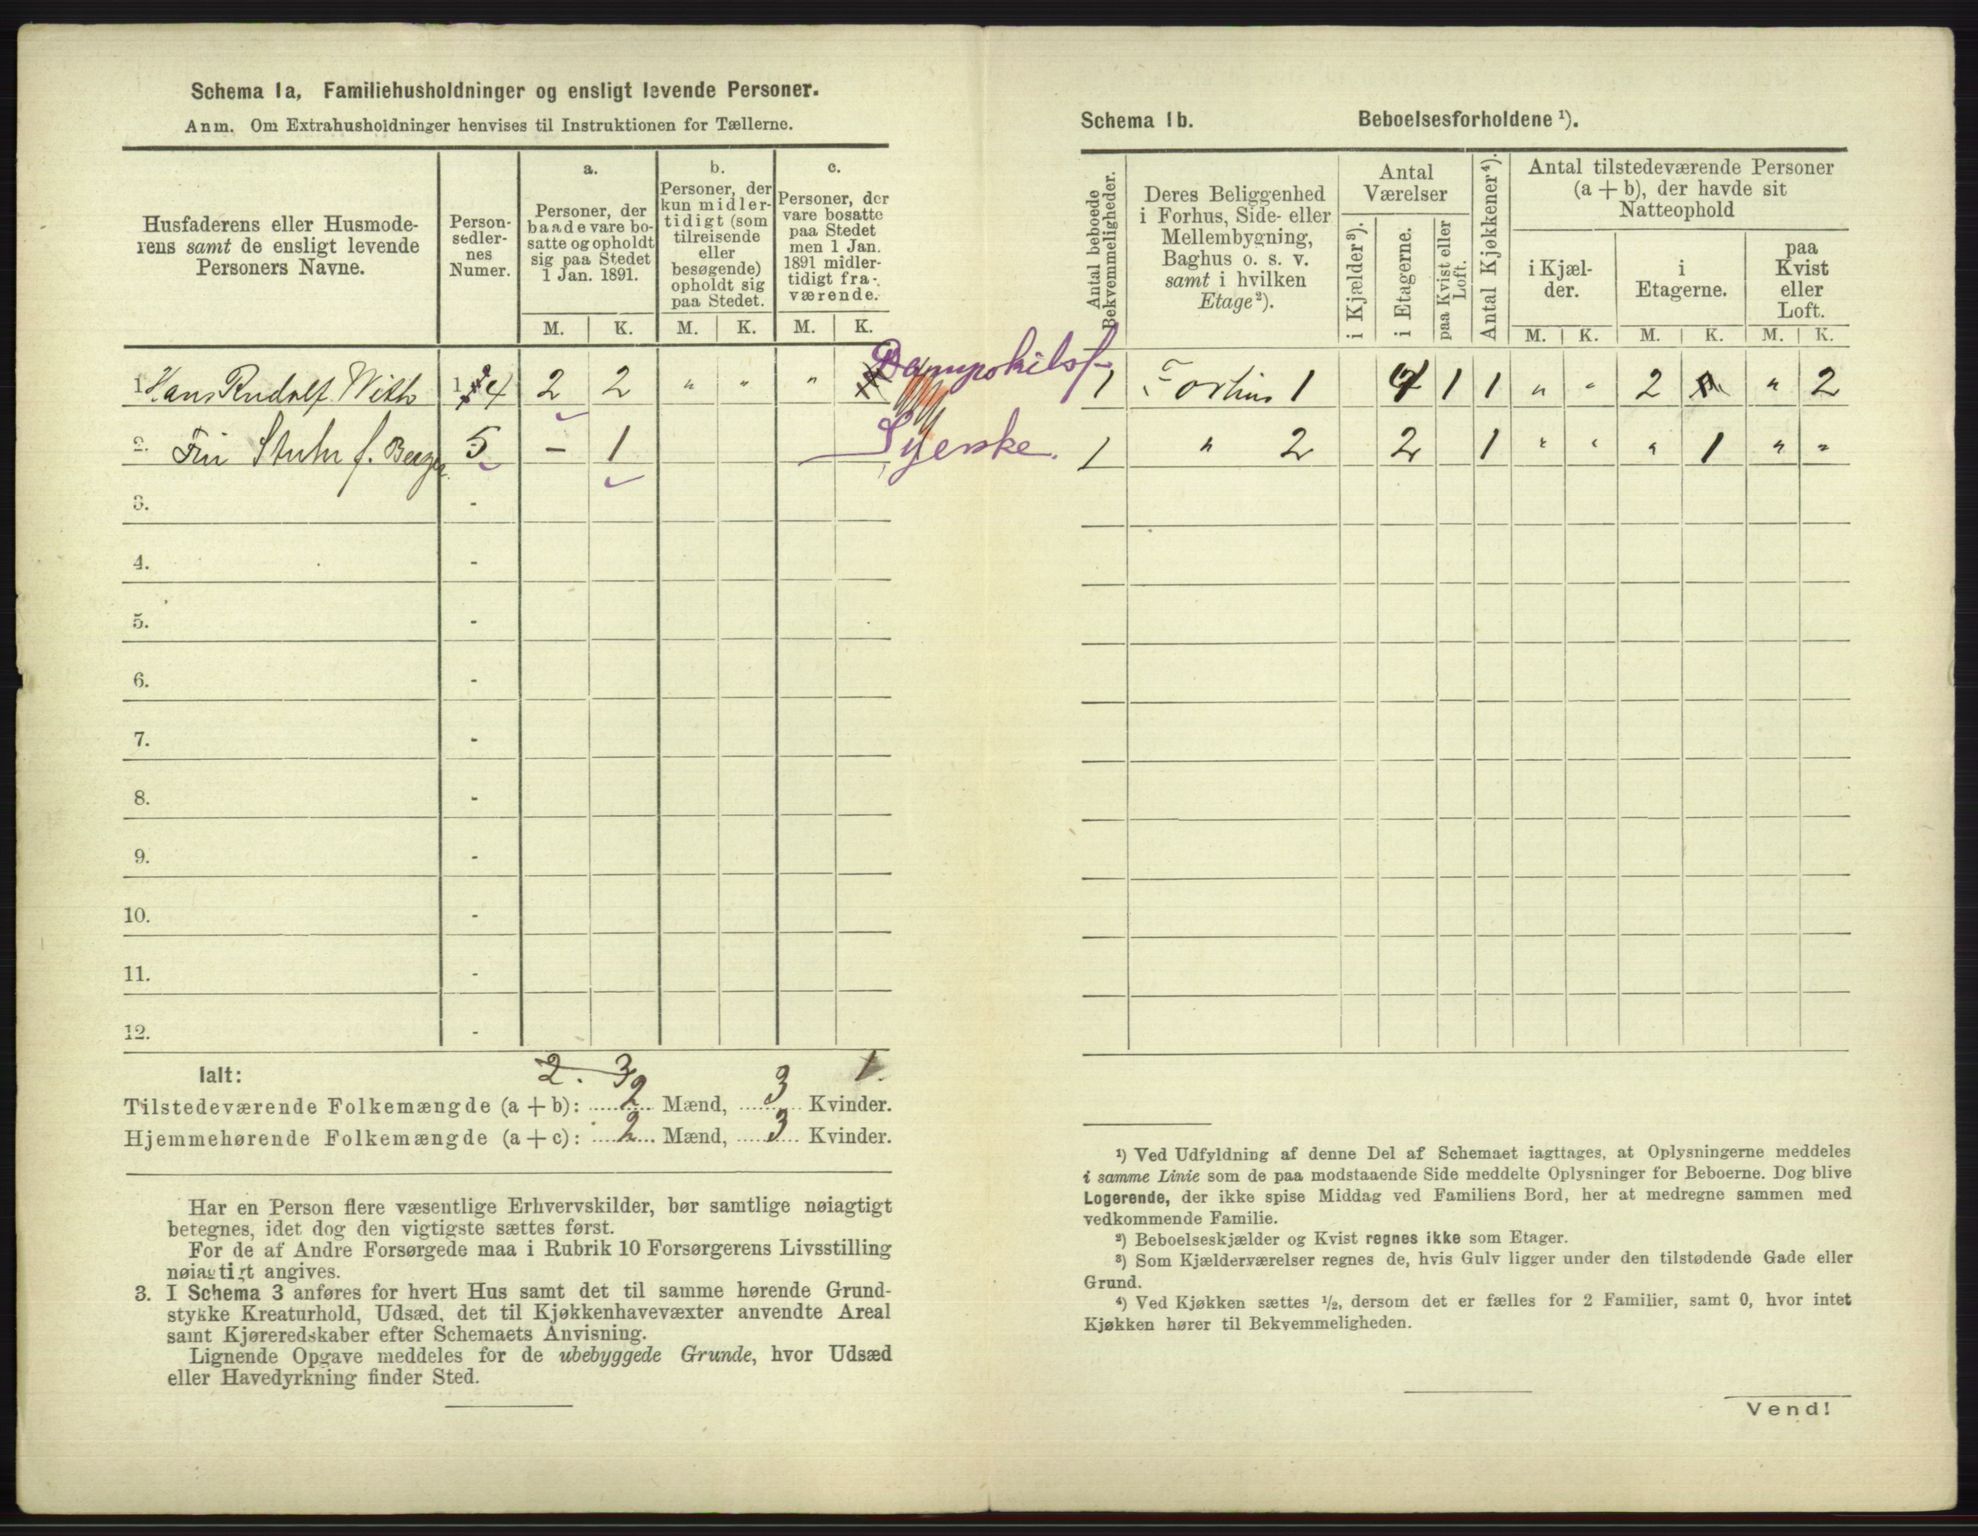 Schema 1a, Familiehusholdninger og ensligt levende Personer.
Anm. Om Extrahusholdninger henvises til Instruktionen for Tællerne.
Husfaderens eller Husmode-
rens samt de ensligt levende
Personers Navne.
Person-
sedler-
nes
Numer.
a.
Personer, der
baade vare bo-
satte og opholdt
sig paa Stedet
1 Jan. 1891.
b.
Personer, der
kun midler-
tidigt (som
tilreisende
eller
besøgende)
opholdt sig
paa Stedet.
c.
Personer, der
vare bosatte
paa Stedet
men 1 Jan.
1891 midler-
tidigt fra-
værende.
M. K. M. K. M. K.
1. Hans Rudolf With 1 - 4 2 2 " " "
2. Fru Stuhr f. Berger 5 - 1 Syerske.
3. -
4. -
5. -
6. -
7. -
8. -
9. -
10. -
11. -
12. -
Ialt: 2. 3 1.
Tilstedeværende Folkemængde (a + b): 2 Mænd, 3 Kvinder.
Hjemmehørende Folkemængde (a + c): 2 Mænd, 3 Kvinder.
Har en Person flere væsentlige Erhvervskilder, bør samtlige nøiagtigt
betegnes, idet dog den vigtigste sættes først.
For de af Andre Forsørgede maa i Rubrik 10 Forsørgerens Livsstilling
nøiagtigt angives.
3. I Schema 3 anføres for hvert Hus samt det til samme hørende Grund-
stykke Kreaturhold, Udsæd, det til Kjøkkenhavevæxter anvendte Areal
samt Kjøreredskaber efter Schemaets Anvisning.
Lignende Opgave meddeles for de ubebyggede Grunde, hvor Udsæd
eller Havedyrkning finder Sted.
Schema 1b. Beboelsesforholdene ¹).
Antal beboede
Bekvemmeligheder.
Deres Beliggenhed
i Forhus, Side- eller
Mellembygning,
Baghus o. s. v.
samt i hvilken
Etage ²).
Antal
Værelser
i Kjælder ³).
i Etagerne.
paa Kvist eller
Loft.
Antal Kjøkkener ⁴).
Antal tilstedeværende Personer
(a + b), der havde sit
Natteophold
i Kjæl-
der.
i
Etagerne.
paa
Kvist
eller
Loft.
M. K. M. K. M. K.
1 Forhus 1 4 1 1 " " 2 " 2
1 " 2 2 1 " " " 1 " "
¹) Ved Udfyldning af denne Del af Schemaet iagttages, at Oplysningerne meddeles
i samme Linie som de paa modstaaende Side meddelte Oplysninger for Beboerne. Dog blive
Logerende, der ikke spise Middag ved Familiens Bord, her at medregne sammen med
vedkommende Familie.
²) Beboelseskjælder og Kvist regnes ikke som Etager.
³) Som Kjælderværelser regnes de, hvis Gulv ligger under den tilstødende Gade eller
Grund.
⁴) Ved Kjøkken sættes ½, dersom det er fælles for 2 Familier, samt 0, hvor intet
Kjøkken hører til Bekvemmeligheden.
Vend!